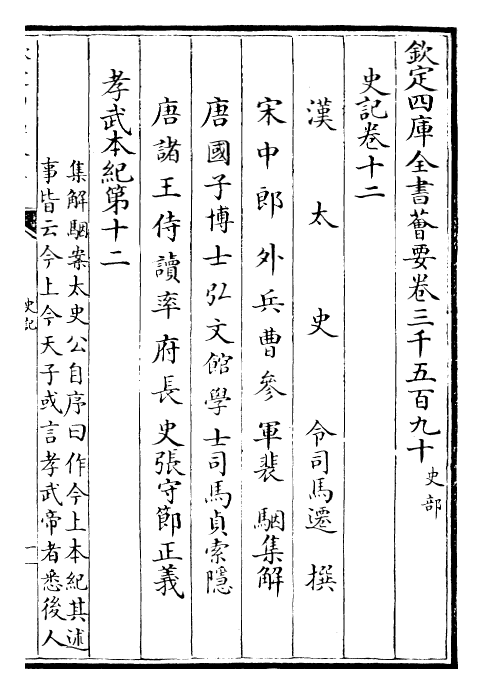 欽定四庫全書薈要卷三千五百九十 史部
史記卷十二
漢太史令司馬遷撰
宋中郎外兵曹參軍裴駰集解
唐國子博士弘文館學士司馬貞索隱
唐諸王侍讀率府長史張守節正義
孝武本紀第十二
集解駰案太史公自序曰作今上本紀其述
事皆云今上今天子或言孝武帝者悉後人
史記
一